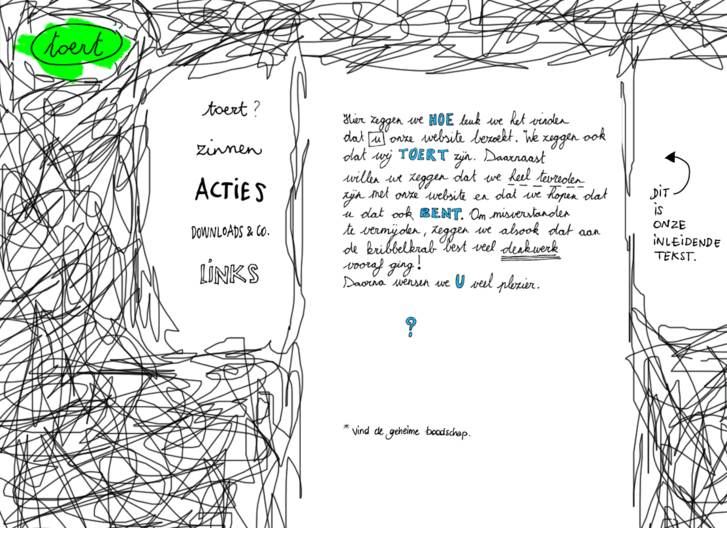 toert
toert?
zinnen
ACTIES
DOWNLOADS & CO.
LINKS
Hier zeggen we HOE leuk we het vinden
dat u onze website bezoekt. We zeggen ook
dat wij TOERT zijn. Daarnaast
willen we zeggen dat we heel tevreden
zijn met onze website en dat we hopen dat
u dat ook BENT. Om misverstanden
te vermijden, zeggen we alsook dat aan
de kribbelkrab best veel denkwerk
vooraf ging!
Daarna wensen we U veel plezier.
?
* vind de geheime boodschap.
DIT
IS
ONZE
INLEIDENDE
TEKST.